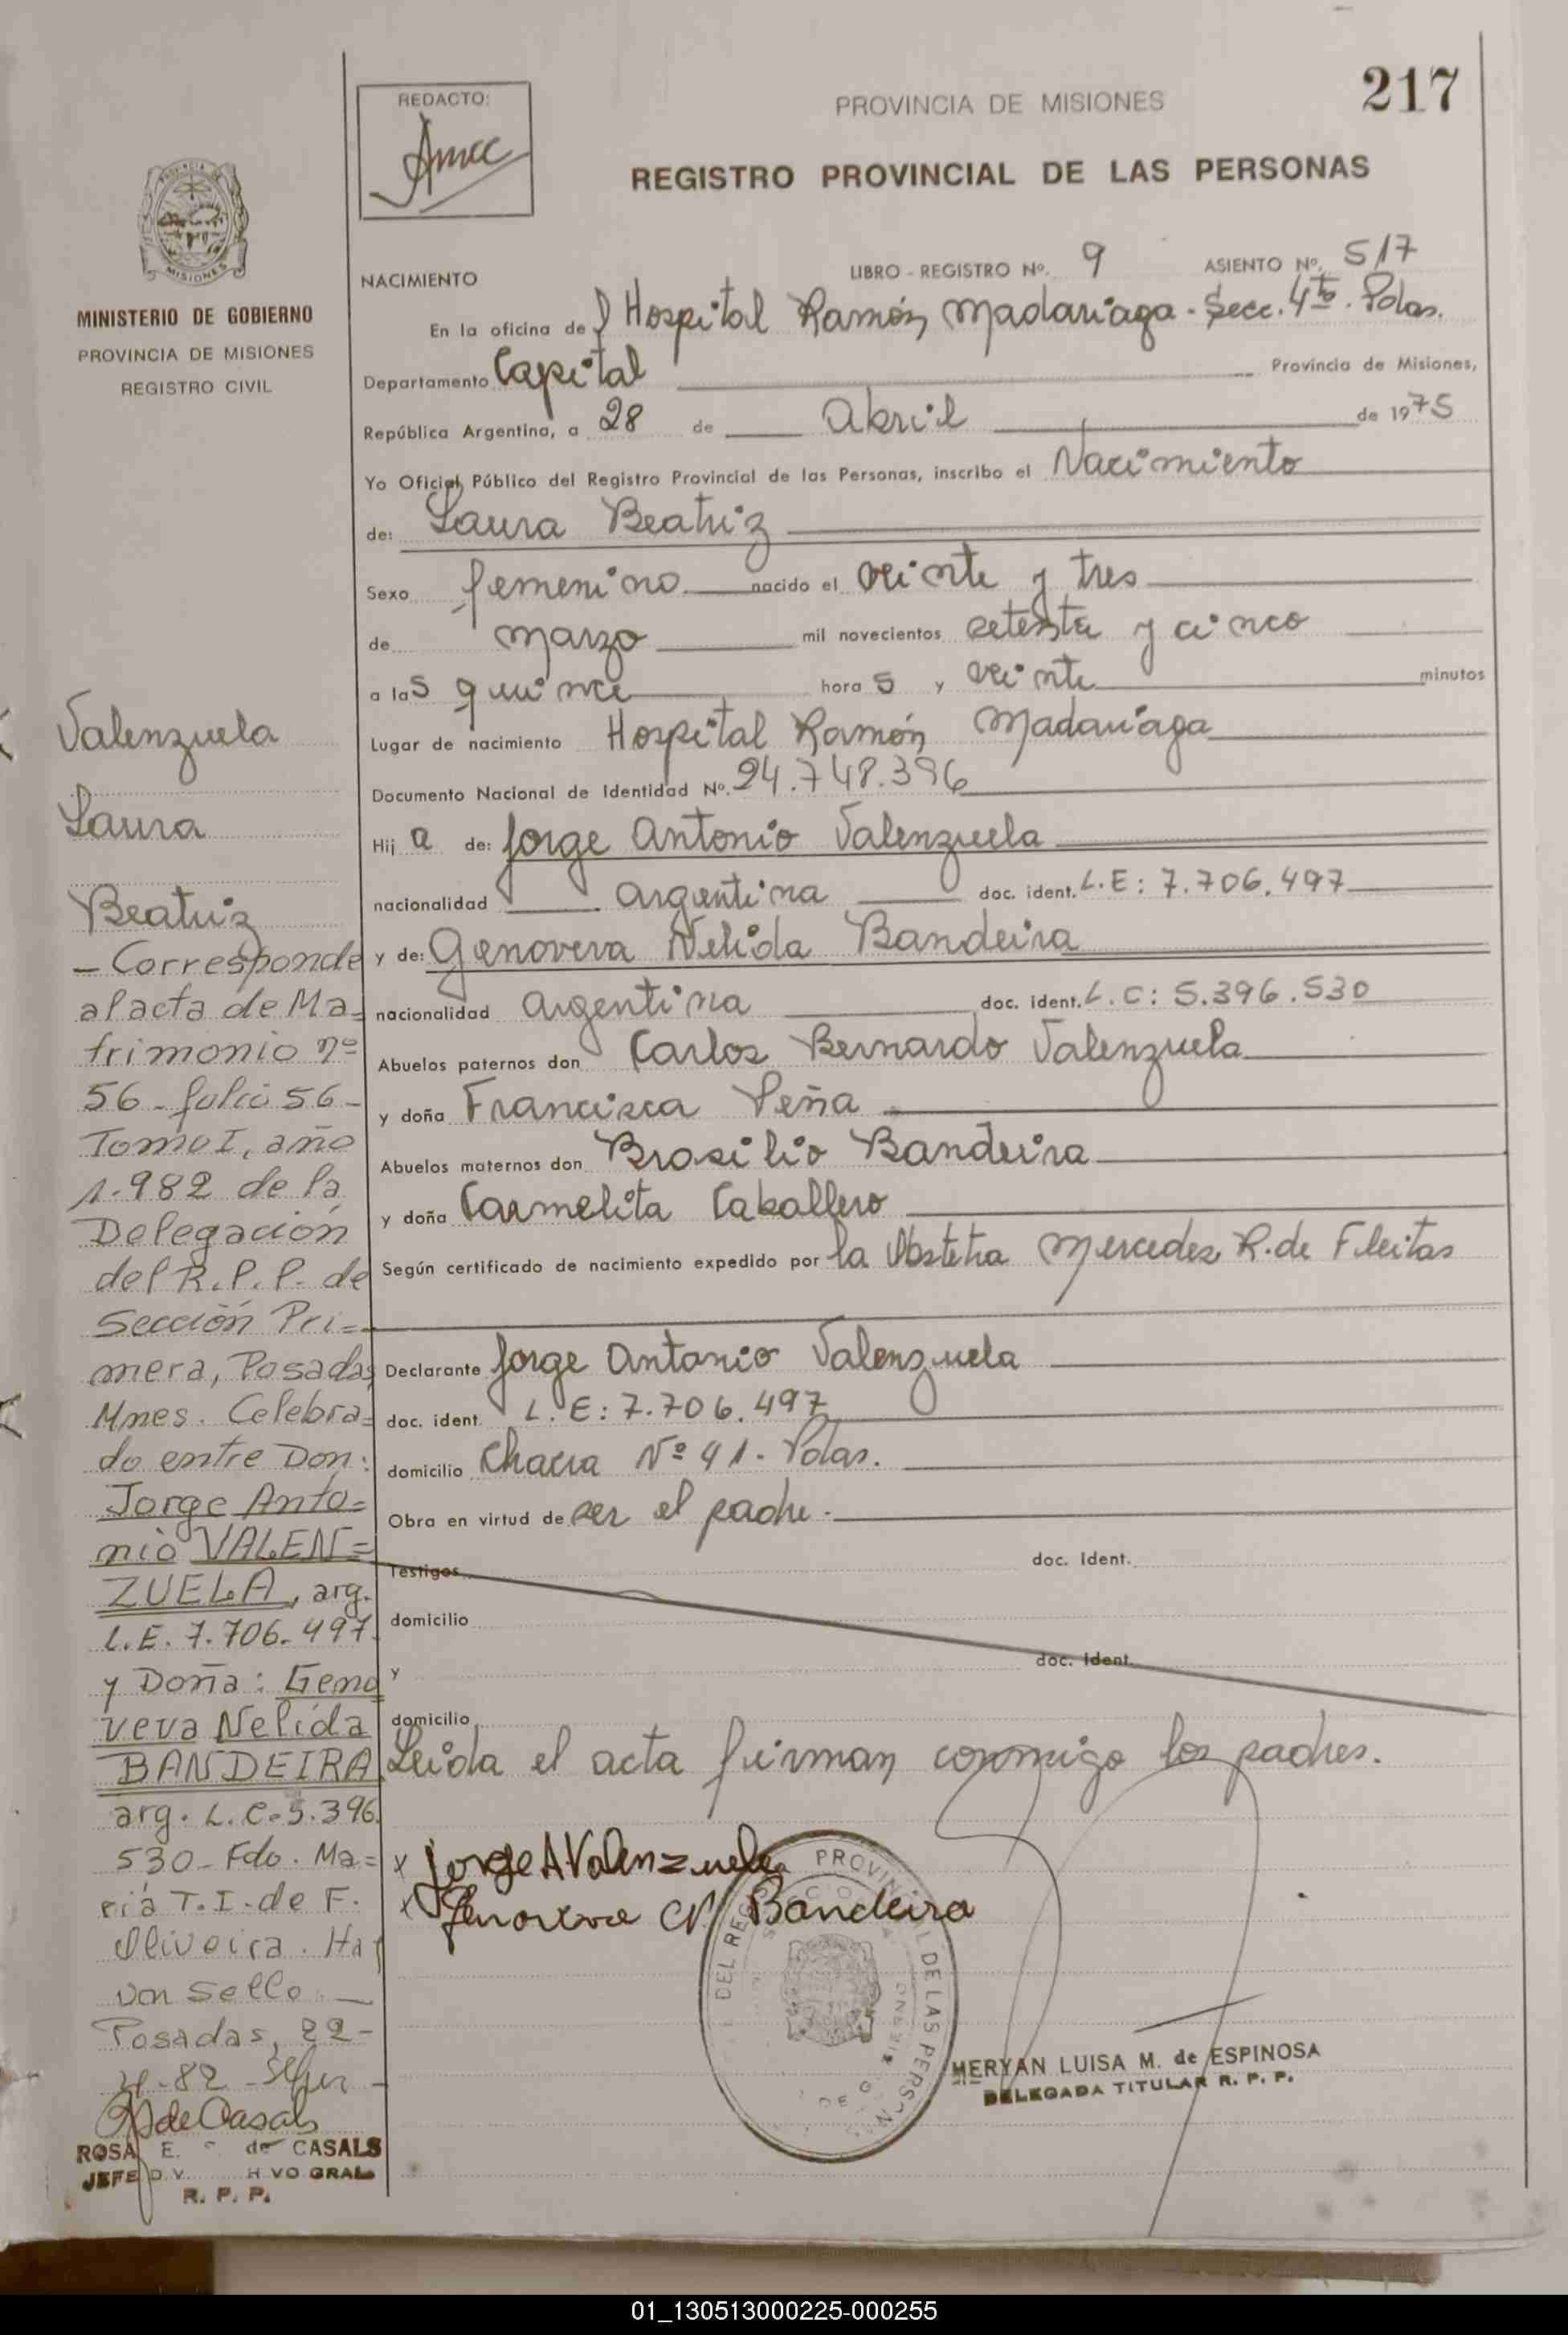 217
REDACTO:
PROVINCIA DE MISIONES
REGISTRO PROVINCIAL DE LAS PERSONAS
MINISTERIO DE GOBIERNO
PROVINCIA DE MISIONES
REGISTRO CIVIL
NACIMIENTO
LIBRO - REGISTRO Nº. 9 ASIENTO Nº. 517
En la oficina del Hospital Ramón Madariaga - Secc. 4ta. Pdas.
Departamento Capital Provincia de Misiones,
República Argentina, a 28 de Abril de 1975
Yo Oficial Público del Registro Provincial de las Personas, inscribo el Nacimiento
de: Laura Beatriz
Sexo femenino nacido el veinte y tres
de marzo mil novecientos setenta y cinco
a las quince horas y veinte minutos
Lugar de nacimiento Hospital Ramón Madariaga
Documento Nacional de Identidad Nº. 24.748.396
Hija de: Jorge Antonio Valenzuela
nacionalidad argentina doc. ident. L.E: 7.706.497
y de: Genoveva Nelida Bandeira
nacionalidad argentina doc. ident. L.C: 5.396.530
Abuelos paternos don Carlos Bernardo Valenzuela
y doña Francisca Peña
Abuelos maternos don Brasilio Bandeira
y doña Carmelita Caballero
Según certificado de nacimiento expedido por la Obstetra Mercedes R. de Fleitas
Declarante Jorge Antonio Valenzuela
doc. ident. L.E: 7.706.497
domicilio Chacra Nº 41 - Pdas.
Obra en virtud de ser el padre.
Testigos doc. ident.
domicilio
y doc. ident.
domicilio
Leida el acta firman conmigo los padres.
Jorge A Valenzuela
Genoveva N Bandeira
MERYAN LUISA M. de ESPINOSA
DELEGADA TITULAR R. P. P.
Valenzuela
Laura
Beatriz
- Corresponde
al acta de Ma=
trimonio nº
56 - folio 56 -
Tomo I, año
1.982 de la
Delegación
del R.P.P. de
Sección Pri=
mera, Posadas,
Mnes. Celebra=
do entre Don:
Jorge Anto=
nio VALEN=
ZUELA, arg.
L.E. 7.706.497
y Doña: Geno
veva Nelida
BANDEIRA
arg. L.C. 5.396.
530 - Fdo. Ma=
ria T.I. de F.
Oliveira. Hay
un sello. —
Posadas, 22-
4-82
de Casals
ROSA E. de CASALS
JEFE
R. P. P.
01_130513000225-000255